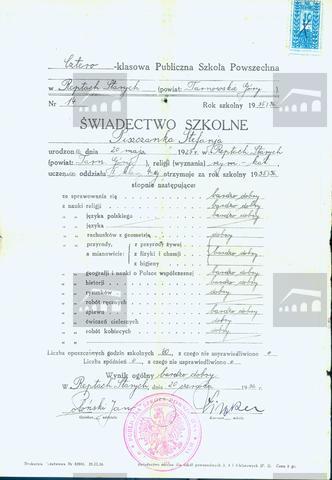 Cztero -klasowa Publiczna Szkoła Powszechna
w Reptach Starych (powiat: Tarnowskie Góry)
Nr 14 Rok szkolny 1935/36
ŚWIADECTWO SZKOLNE
Stefanja
urodzona dnia 20 maja 1925 r. w Reptach Starych
(powiat: Tarn. Góry), religji (wyznania) rzym.-kat.
uczenica oddziału otrzymuje za rok szkolny 1935/36
stopnie następujące:
ze sprawowania się bardzo dobry
z nauki religji bardzo dobry
" " języka polskiego dobry
" " języka
" " rachunków z geometrją dobry
" " przyrody, z przyrody żywej
a mianowicie: z fizyki i chemji bardzo dobry
z higjeny
" " geografji i nauki o Polsce współczesnej bardzo dobry
" " historji bardzo dobry
" " rysunków dobry
" " robót ręcznych
" " śpiewu bardzo dobry
" " ćwiczeń cielesnych dobry
" " robót kobiecych dobry
Liczba opuszczonych godzin szkolnych 60, z czego nie usprawiedliwiono 0
Liczba spóźnień 0, z czego nie usprawiedliwiono 0
Wynik ogólny bardzo dobry
W Reptach Starych, dnia 20 czerwca 1936